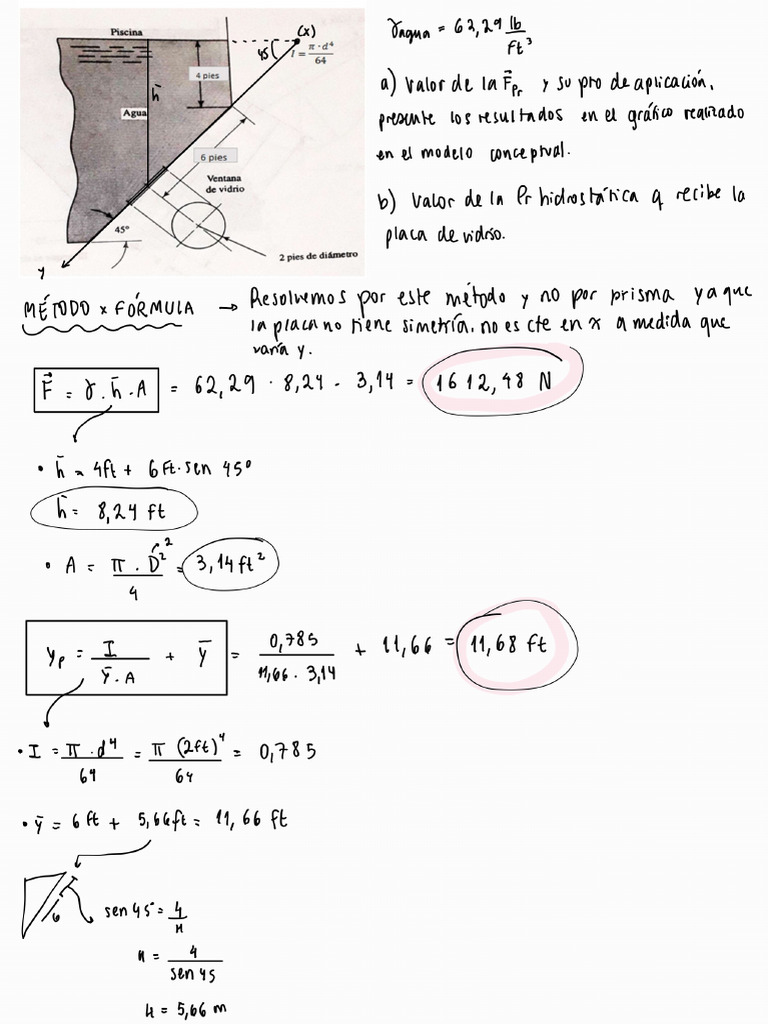 Piscina
(x)
45
I = π·d⁴/64
4 pies
h̄
Agua
6 pies
Ventana
de vidrio
45°
2 pies de diámetro
y
γagua = 62,29 lb/ft³
a) Valor de la F⃗Pr y su pro de aplicación,
presente los resultados en el gráfico realizado
en el modelo conceptual.
b) Valor de la Pr hidrostática q recibe la
placa de vidrio.
MÉTODO x FÓRMULA → Resolvemos por este método y no por prisma ya que
la placa no tiene simetría, no es cte en x a medida que
varía y.
F⃗ = γ · h̄ · A = 62,29 · 8,24 · 3,14 = 1612,48 N
• h̄ = 4ft + 6ft·sen 45°
h̄ = 8,24 ft
• A = π · D²/4 = 3,14 ft²
2
yP = I/(ȳ·A) + ȳ = 0,785/(11,66 · 3,14) + 11,66 = 11,68 ft
• I = π·d⁴/64 = π (2ft)⁴/64 = 0,785
• ȳ = 6 ft + 5,66 ft = 11,66 ft
6
sen 45° = 4/H
H = 4/sen 45
H = 5,66 m